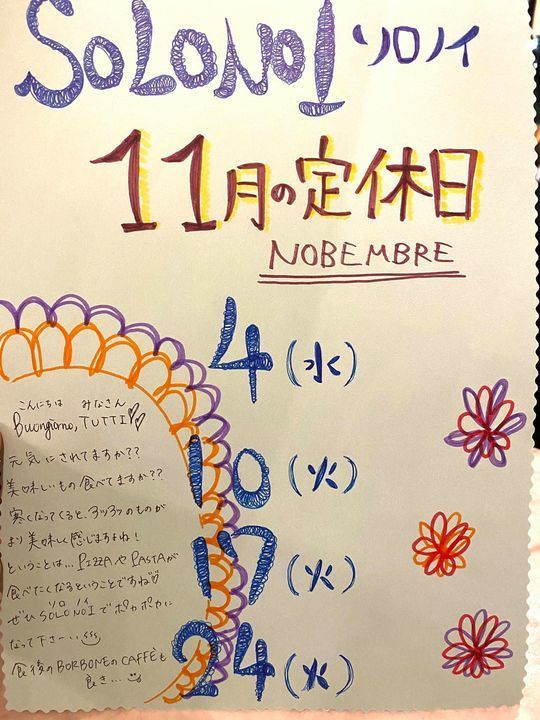 SOLONOI ソロノイ
11月の定休日
NOBEMBRE
4(水)
10(火)
17(火)
24(火)
こんにちは みなさん
Buongiorno, TUTTI♡♡
元気にされてますか??
美味しいもの食べてますか??
寒くなってくると、アツアツのものが
より美味しく感じますよね!
ということは…PIZZAやPASTAが
食べたくなるということですね♡
ソロノイ
ぜひSOLONOIでポカポカに
なって下さーい
食後のBORBONEのCAFFÈも
良き…